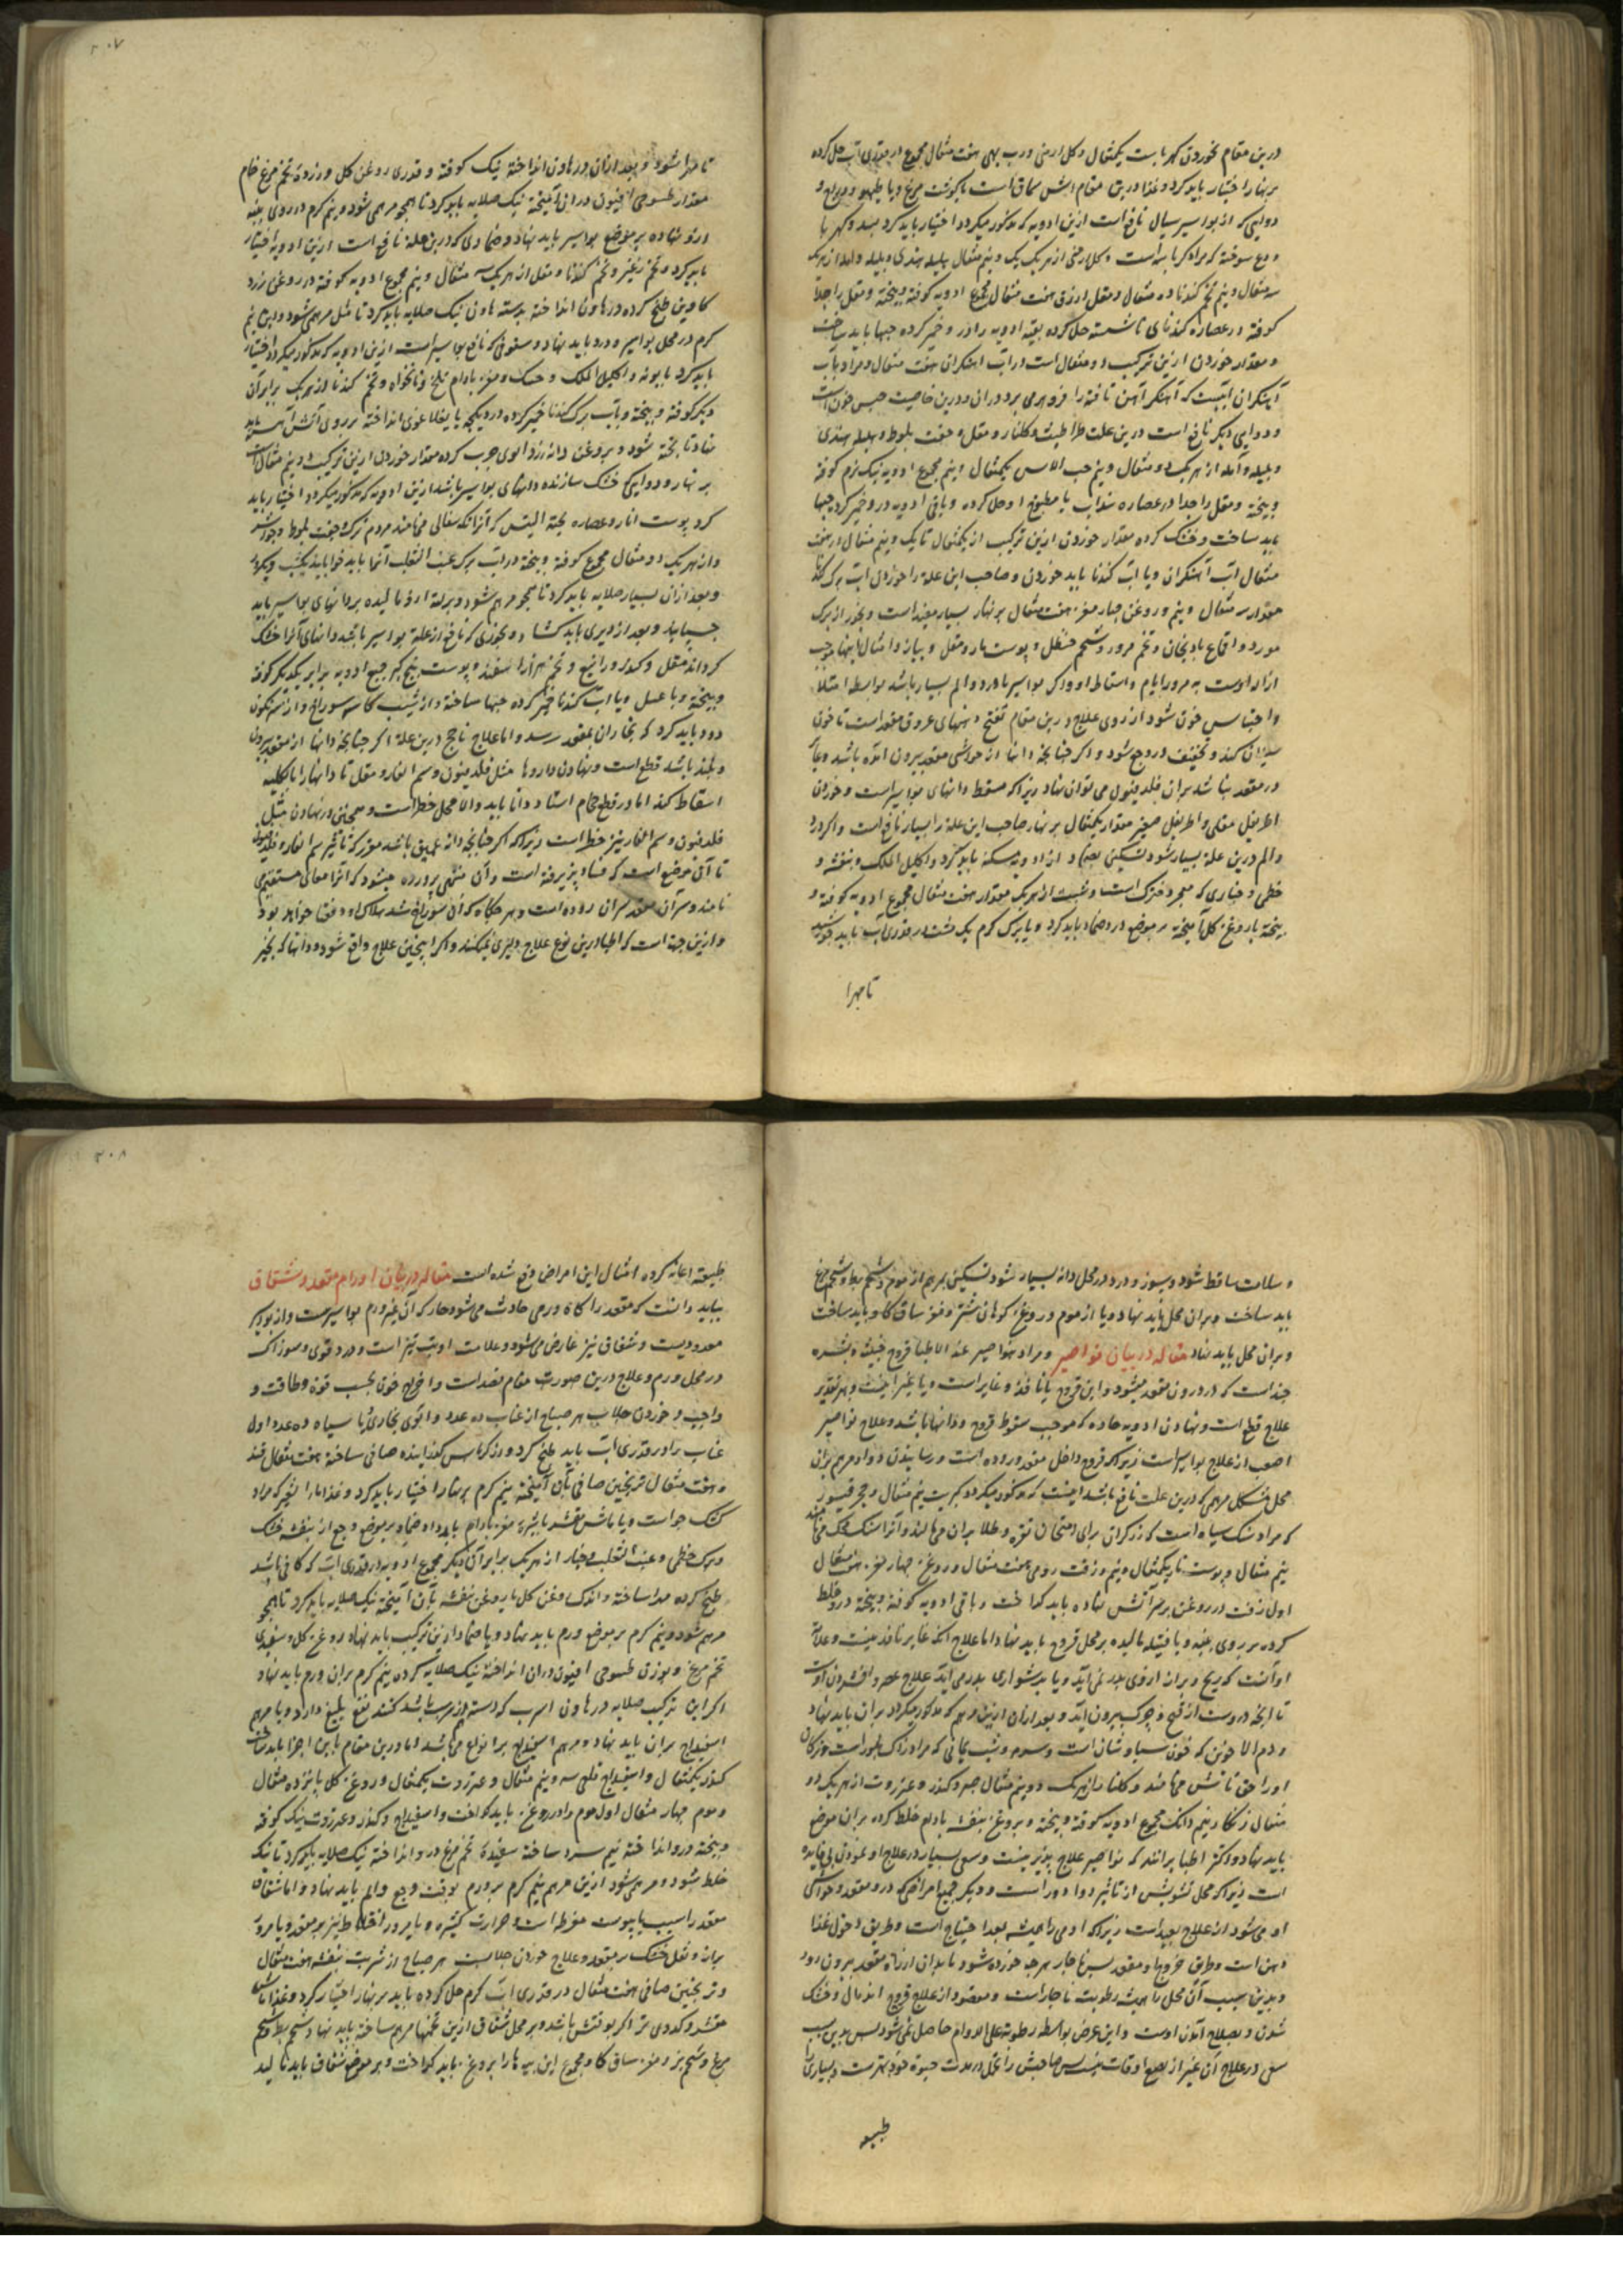 درین مقام بخوردن کهربا است یکمثقال و کل ارمنی و رب بهی هفت مثقال مجموع در قدری آب حل کرده
بر نهار اختیار باید کرد و غذا درین مقام اش سماق است با گوشت مرغ و یا طیهو و دراج و
دوایی که از بواسیر سیال نافع است ازین ادویه که مذکور میکردد اختیار باید کرد بسد و کهربا
و ودع سوخته که مراد کربا به است و کل ارمنی از هر یک یک و نیم مثقال هلیله هندی و بلیله و آمله از هر یک
سه مثقال و نیم تخم کندنا ده مثقال و مقل ازرق هفت مثقال مجموع ادویه کوفته و بیخته و مقل را جدا
کوفته در عصاره کندنای تا شسته حل کرده بقیه ادویه را در و خمیر کرده حبها باید ساخت
و مقدار خوردن ازین ترکیب دو مثقال است در آب آهنکران هفت مثقال و مراد بآب
آهنکران آبیست که آهنکر آهن تافته را فرو می برد در آن و درین خاصیت حبس خون است
و دوایی دیکر نافع است درین علت طراثیث و کلنار و مقل و جفت بلوط و هلیله هندی
و بلیله و آمله از هر یک دو مثقال و نیم حب الاس یکمثقال و نیم مجموع ادویه نیک نرم کوفته
و بیخته و مقل را جدا در عصاره سداب یا مطبوخ او حل کرده و باقی ادویه در و خمیر کرده حبها
باید ساخت و خشک کرده مقدار خوردن ازین ترکیب از یکمثقال تا یک و نیم مثقال در هفت
مثقال آب آهنکران و یا آب کندنا باید خوردن و صاحب این علة را خوردن آب برک کندنا
مقدار سه مثقال و نیم و روغن چهار مغز هفت مثقال بر نهار بسیار مفید است و بخور از برک
مورد و اقماع بادنجان و تخم مرور و شحم حنظل و پوست مار و مقل و پیاز و امثال اینها موجب
آزار اوست به مرور ایام و اسقاط او و اکر بواسیر با درد و الم بسیار باشد بواسطه امتلا
و احتباس خون شود از روی علاج درین مقام تفتح دهنهای عروق مقعد است تا خون
سیلان کند و تخفیف در وجع شود و اکر چنانچه دانها از حواشی مقعد بیرون آمده باشد و غایر
در مقعد نباشد بران فلدفیون می توان نهاد زیرا که مسقط دانهای بواسیر است و خوردن
اطریفل مقلی و اطریفل صغیر مقدار یکمثقال بر نهار صاحب این علة را بسیار نافع است و اکر درد
و الم درین علة بسیار شود تسکین بضماد از ادویه مسکنه باید کرد و اکلیل الملک و بنفشه و
خطمی و خبازی که مجرد خترک است و شبت از هر یک مقدار هفت مثقال مجموع ادویه کوفته و
بیخته با روغن کل آمیخته بر موضع درد ضماد باید کرد و یا برک کرم یک دسته در قدری آب باید جوشید
تا مهرا
۳۰۷
تا مهرا شود و بعد ازان در هاون انداخته نیک کوفته و قدری روغن کل و زرده تخم مرغ خام
مقدار طسوجی افیون دران آمیخته نیک صلایه باید کرد تا همچو مرهمی شود و نیم کرم در روی پنبه
ازو نهاده بر موضع بواسیر باید نهاد و ضمادی که درین علة نافع است ازین ادویه اختیار
باید کرد و تخم رغیر و تخم کندنا و مقل از هر یک سه مثقال و نیم مجموع ادویه کوفته در روغن زرد
کاوین طبخ کرده در هاون انداخته بدسته هاون نیک صلایه باید کرد تا مثل مرهمی شود و ازین نیم
کرم در محل بواسیر و درد باید نهاد و سفوفی که نافع بواسیر است ازین ادویه که مذکور میکردد اختیار
باید کرد بابونه و اکلیل الملک و حسک و مغز بادام تلخ و نانخواه و تخم کندنا از هر یک برابر آن
دیکر کوفته و بیخته و بآب برک کندنا خمیر کرده در دیکچه یا یغلاغوی انداخته بر روی آتش آهسته باید
نهاد تا پخته شود و بروغن دانه زردالوی چرب کرده مقدار خوردن ازین ترکیب دو نیم مثقال است
بر نهار و دوایی که خشک سازنده دانهای بواسیر باشد ازین ادویه که مذکور میکردد اختیار باید
کرد پوست انار و عصاره لحیة التیس که آنرا نکه سفالی می نامند مردم ترک جفت بلوط و جوز سرو
و از هر یک دو مثقال مجموع کوفته و بیخته در آب برک عنب الثعلب آنها باید خوابانید یکشب و یکروز
و بعد ازان بسیار صلایه باید کرد تا همچو مرهم شود و برلته ازو مالیده بر دانهای بواسیر باید
چسپانید و بعد از دیری باید کشاد و بخوری که نافع از علة بواسیر باشد و دانهای آنرا خشک
کرداند مقل و کندر و رازیانج و تخم هزار اسفند و پوست بیخ کبر جمیع ادویه برابر یکدیکر کوفته
و بیخته و با عسل و یا آب کندنا خمیر کرده حبها ساخته و از شیب کاسه سوراخ دار سرنکون
دود باید کرد که بخار آن بمقعد رسد و اما علاج ناجح درین علة اکر چنانچه دانها از مقعد بیرون
و بلند باشد قطع است و نهادن داروها مثل فلدفیون و سم الفار و مقل تا دانها را بالکلیه
اسقاط کند اما در قطع حجام استاد و دانا باید و آن محل خطر است و همچنین در نهادن مثل
فلدفیون و سم الفار نیز خطر است زیرا که اکر چنانچه دانه عمیق باشد مقرر که تاثیر سم الفار و فلدفیون
تا آن موضع است که فساد پذیرفته است و آن منتهی بروده میشود که آنرا معای مستقیم می
نامند و سر آن مقعد سر آن روده است و هر جکاه که آن سوراخ شد هلاک او دفعة خواهد بود
و ازین جهة است که اطبا درین نوع علاج دلیری نمیکنند و اکر اینچنین علاج واقع شود و دانها که بخیر
و سلامت ساقط شود و سوز و درد در محل دانه بسیار شود تسکین بمرهم از موم و شحم بط و شحم مرغ
باید ساخت و بران محل باید نهاد و یا از موم و روغن کوهان شتر و مغز ساق کاو باید ساخت
و بران محل باید نهاد مقاله در بیان نواصیر و مراد بنواصیر عند الاطبا قروح خبیثه و بشره
چند است که در درون مقعد میشود و این قروح یا نافذه و غایر است و یا غیر اینست و بهر تقدیر
علاج قطع است و نهادن ادویه حاده که موجب سقوط قروح و دانها باشد و علاج نواصیر
اصعب از علاج بواسیر است زیرا که قروح داخل مقعد و روده است و رسانیدن دوا و مرهم بران
محل مشکل مرهمی که درین علت نافع باشد اینست که مذکور میکردد کبریت نیم مثقال و حجر قیسور
که مراد سنک سیاه است که زرکران برای امتحان نقره و طلا بران می مالند و آنرا سنک محک می نامند
نیم مثقال و پوست مار یکمثقال و نیم و زفت رومی هفت مثقال و روغن چهار مغز هفت مثقال
اول زفت در روغن بر سر آتش نهاده باید کداخت و باقی ادویه کوفته و بیخته در و خلط
کرده بر روی پنبه و یا فتیله مالیده بر محل قروح باید نهاد اما علاج آنچه غایر نافذ نیست و علامت
او آنست که ریح و براز ازوی بدر نمی آید و یا بدشواری بدر می آید علاج عصر و افشردن اوست
تا آنچه دروست از قیح و چرک بیرون آید و بعد ازان ازین مرهم که مذکور میکردد بران باید نهاد
و دم الاخوین که خون سیاوشان است و سرمه و شب یمانی که مراد زاک بلور است و ترکان
اورا حق تاتش می نامند و کلنار از هر یک دو نیم مثقال صبر و کندر و عنزروت از هر یک دو
مثقال زنکار نیم دانک مجموع ادویه کوفته و بیخته و بروغن بنفشه بادام خلط کرده بران موضع
باید نهاد و اکثر اطبا برانند که نواصیر علاج پذیر نیست و سعی بسیار در علاج او نمودن بی فایده
است زیرا که محل تشویش از تاثیر دوا دور است و دیکر جمیع امراضی که در مقعد و حواشی
او می شود از علاج بعید است زیرا که آدمی را همیشه بغذا احتیاج است و طریق دخول غذا
دهن است و طریق خروج او مقعد پس ناچار هر چه خورده شود باید آن از راه مقعد بیرون رود
و بدین سبب آن محل را همیشه رطوبت ناچار است و مقصود از علاج قروح اندمال و خشک
شدن و بصلاح آمدن اوست و این غرض بواسطه رطوبة علی الدوام حاصل نمی شود پس بدین سبب
سعی در علاج آن غیر از ضیع اوقات نیست پس صاحبش را تحمل در مدت حیوة خود بهترست و بسیاری
طبیعه
۳۰۸
طبیعة اعانه کرده امثال این امراض دفع شده است مقاله در بیان اورام مقعد و شقاق
بباید دانست که مقعد را کاه ورمی حادث می شود حار که آن غیر ورم بواسیرست و از بواسیر
معدودیست و شقاق نیز عارض می شود و علامت او تب تیز است و درد قوی و سوزاک
در محل ورم و علاج درین صورت مقام فصد است و اخراج خون بحسب قوة و طاقت و
واجب و خوردن جلاب هر صباح از عناب ده عدد و آلوی بخاری یا سیاه ده عدد اول
عناب را در قدری آب باید طبخ کرد و در کرباس کذرانیده صافی ساخته هفت مثقال قند
و هفت مثقال ترنجبین صافی بآن آمیخته نیم کرم بر نهار اختیار باید کرد و غذا ماء الشعیر که مراد
کشک جو است و یا ماش مقشر باشیره مغز بادام باید داد ضماد بر موضع وجع از بنفشه خشک
و برک خطمی و عنب الثعلب و خیار از هر یک برابر آن دیکر مجموع ادویه در قدری آب که کافی باشد
طبخ کرده مهرا ساخته و اندک روغن کل یا روغن بنفشه بآن آمیخته نیک صلایه باید کرد تا همچو
مرهم شود و نیم کرم بر موضع ورم باید نهاد و یا ضماد ازین ترکیب باید نهاد روغن کل و سفیدی
تخم مرغ و بوزن طسوجی افیون دران انداخته نیک صلایه کرده نیم کرم بران ورم باید نهاد و
اکر این ترکیب صلایه در هاون اسرب که دسته هم از سرب باشد کنند نفع بلیغ دارد و یا مرهم
اسفیداج بران باید نهاد و مرهم اسفیداج بر انواع می باشد اما درین مقام باین اجزا باید ساخت
کندر یکمثقال و اسفیداج قلعی سه و نیم مثقال و عنزروت یکمثقال و روغن کل پانزده مثقال
و موم چهار مثقال اول موم را در روغن باید کداخت و اسفیداج و کندر و عنزروت نیک کوفته
و بیخته در و انداخته نیم سرد ساخته سفیده تخم مرغ در و انداخته نیک صلایه باید کرد تا نیک
خلط شود و مرهمی شود ازین مرهم نیم کرم بر ورم بوقت وجع و الم باید نهاد و اما شقاق
مقعد را سبب یا یبوست مفرطه است و حرارت کثیره و یا مرور اخلاط تیز بر مقعد و یا مرور
براز و ثفل خشک بر مقعد و علاج خوردن جلابست هر صباح از شربت بنفشه هفت مثقال
و ترنجبین صافی هفت مثقال در قدری آب کرم حل کرده باید بر نهار اختیار کرد و غذا ماش
مقشر و کدوی تر اکر بوقتش باشد و بر محل شقاق ازین شحمها مرهم ساخته باید نهاد و شحم بط و شحم
مرغ و شحم بز و مغز ساق کاو مجموع این پیه ها را بروغن باید کداخت و بر موضع شقاق باید مالید